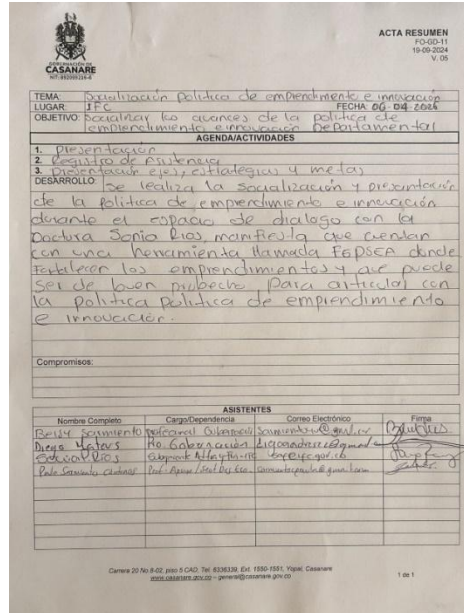 GOBERNACIÓN DE
CASANARE
NIT: 892099216-6
ACTA RESUMEN
FO-GD-11
19-09-2024
V. 05
TEMA: Socialización política de emprendimiento e innovación
LUGAR: IFC FECHA: 06-04-2026
OBJETIVO: Socializar los avances de la política de
emprendimiento e innovación Departamental
AGENDA/ACTIVIDADES
1. Presentación
2. Registro de Asistencia
3. Presentación ejes, estrategias y metas
DESARROLLO: Se realiza la socialización y presentación
de la política de emprendimiento e innovación
durante el espacio de dialogo con la
Doctora Sonia Rios, manifiesta que cuentan
con una herramienta llamada FEPSEA donde
fortalecer los emprendimientos y que puede
ser de buen probecho para articular con
la política política de emprendimiento
e innovación.
Compromisos:
ASISTENTES
Nombre Completo Cargo/Dependencia Correo Electrónico Firma
Betsy Sarmiento profesional
Diego Mateus Gobernación
Rios
Sarmiento
Carrera 20 No.8-02, piso 5 CAD, Tel. 6336339, Ext. 1550-1551, Yopal, Casanare
www.casanare.gov.co – general@casanare.gov.co
1 de 1